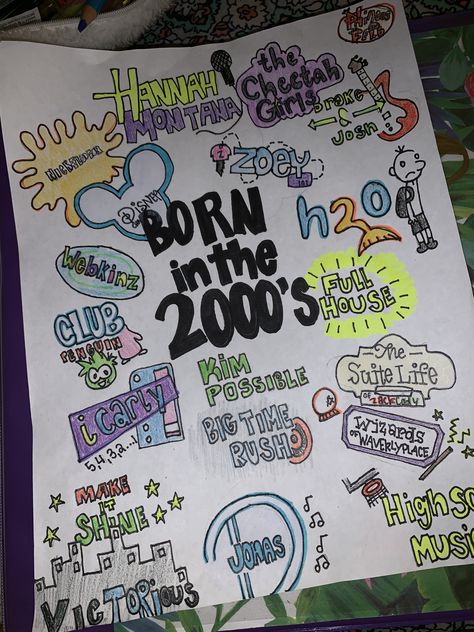 Phineas
&
Ferb
HANNAH
MONTANA
the
Cheetah
Girls
Drake
&
Josh
Nickelodeon
Disney
ZOEY
101
h2o
BORN
in the
2000's
Webkinz
FULL
HOUSE
CLUB
PENGUIN
KIM
POSSIBLE
The
Suite Life
of Zack & Cody
iCarly
5, 4, 3, 2...!
BIG TIME
RUSH
WIZARDS
OF WAVERLY PLACE
MAKE
IT
SHINE
VICTORIOUS
JONAS
High Sc
Music